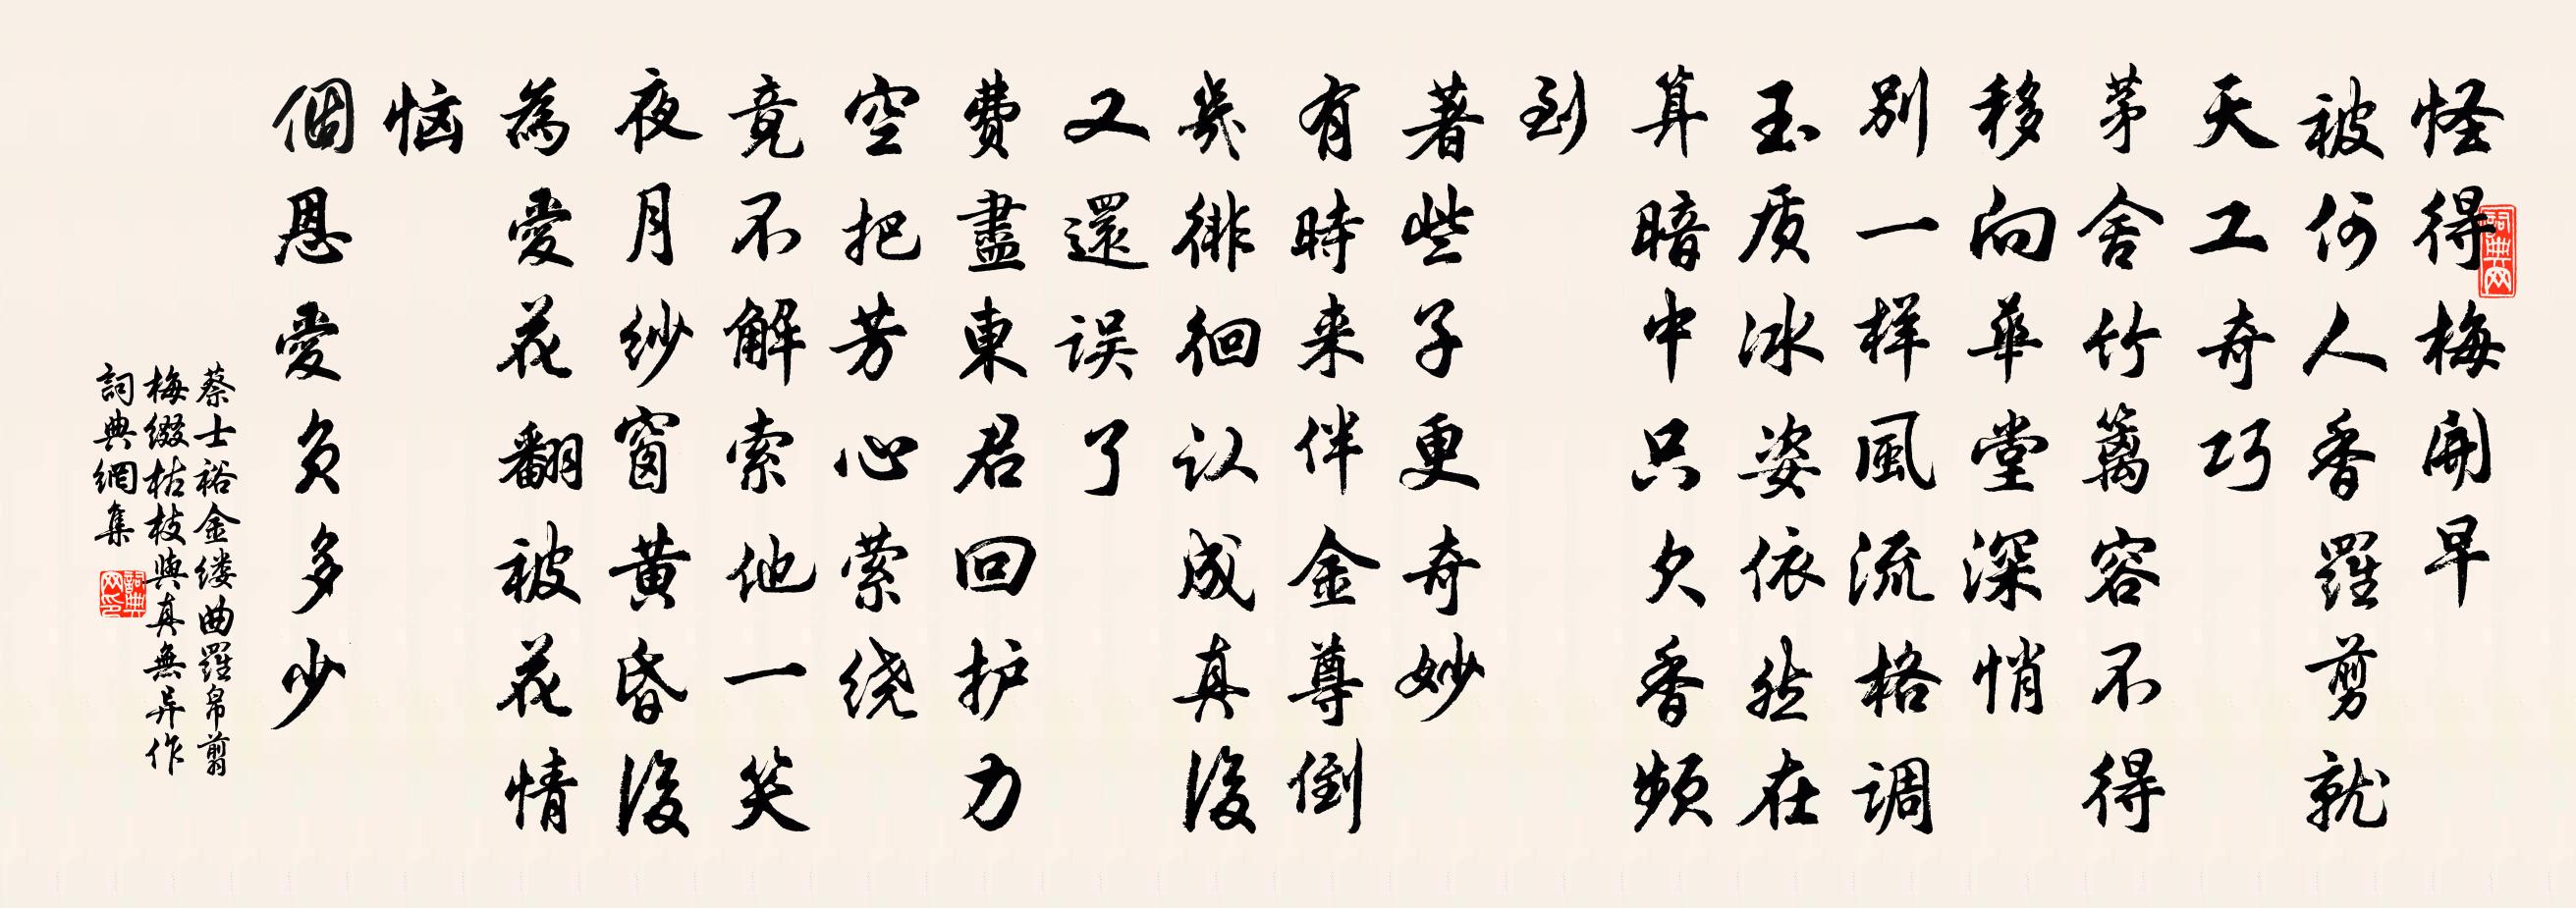 怪得梅開早
被何人香羅剪就
天工奇巧
茅舍竹篱容不得
移向華堂深悄
别一样風流格调
玉质冰姿依然在
算暗中只欠香频
到
著些子更奇妙
有時来伴金尊倒
幾徘徊认成真後
又還误了
費盡東君回护力
空把芳心萦绕
竟不解索他一笑
夜月纱窗黄昏後
為愛花翻被花情
恼
個恩愛负多少
蔡士裕金缕曲羅帛剪
梅缀枯枝與真無异作
詞典網集
詞典网
詞典网印